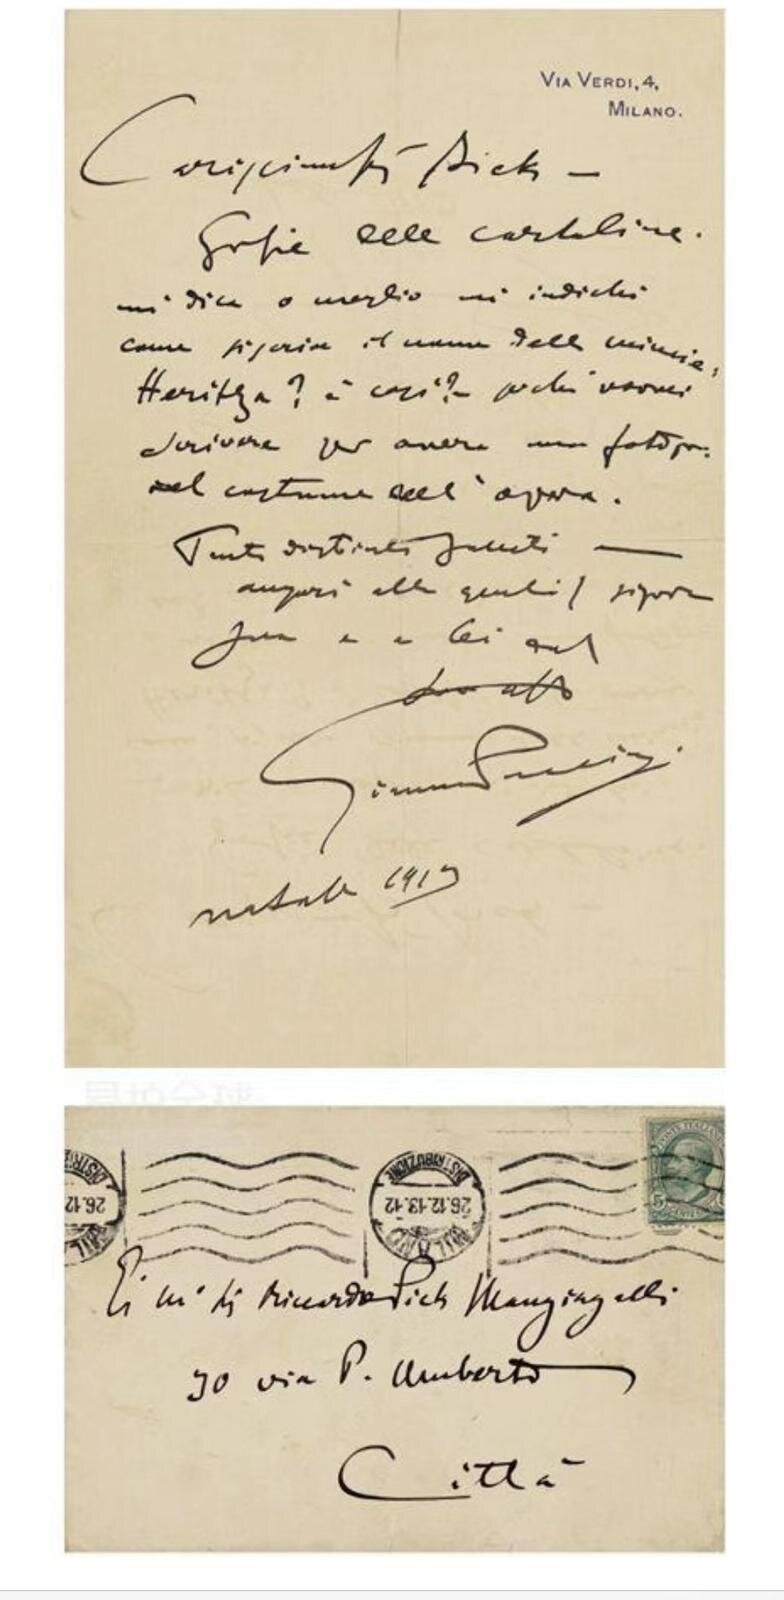 VIA VERDI, 4,
MILANO.
Carissimo Pick —
Grazie della cartolina.
mi dica o meglio mi indichi
come si scrive il nome della
Heritza? è così? perchè vorrei
scrivere per avere una fotogr.
nel costume dell'opera.
Tanti distinti saluti —
auguri alla gentil signora
sua e a lei dal
Giacomo Puccini
natale 1913
DISTRIBUZIONE
26.12.13.12
MILANO
DISTRIBUZIONE
26.12
MILANO
POSTE ITALIANE
5
Riccardo Pick Mangiagalli
30 via P. Umberto
Città